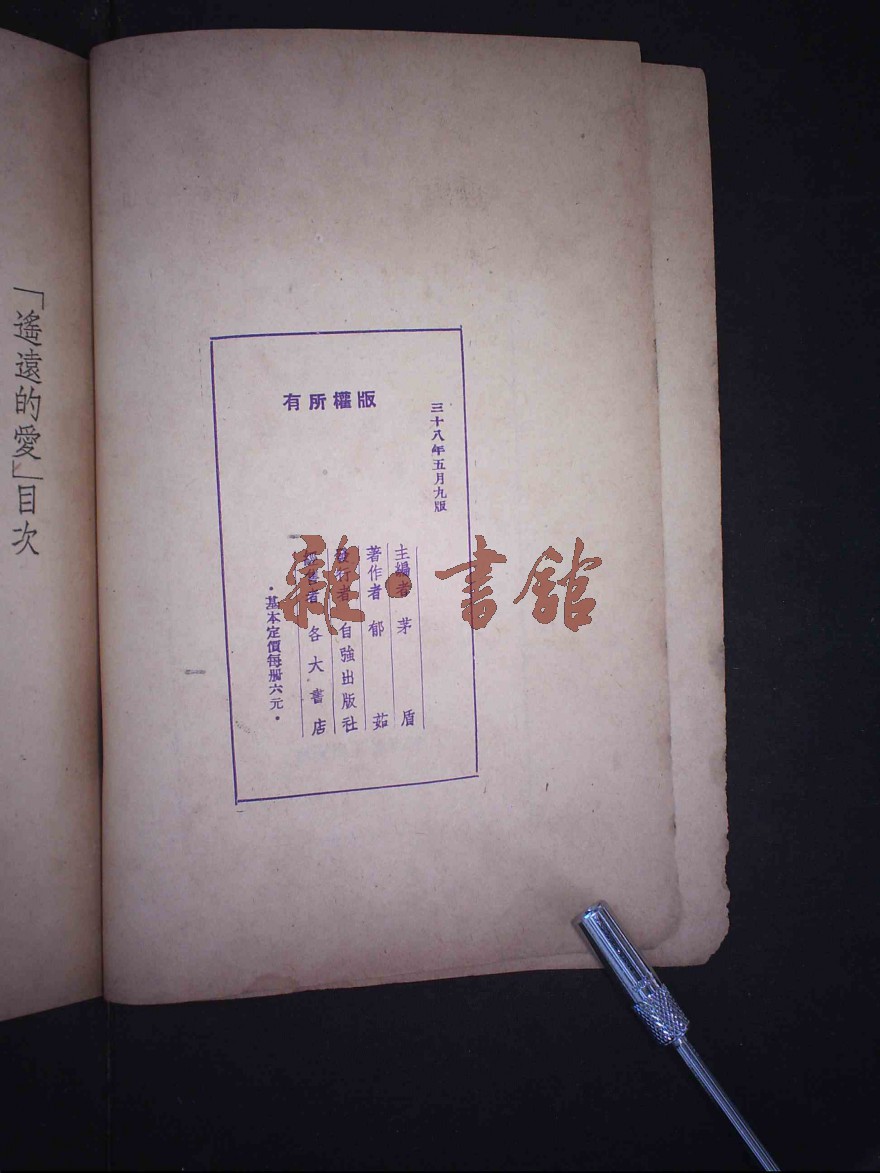 三十八年五月九版
版權所有
主編者 茅盾
著作者 郁茹
發行者 自強出版社
經售者 各大書店
·基本定價每册六元·
「遙遠的愛」目次
雜·書館